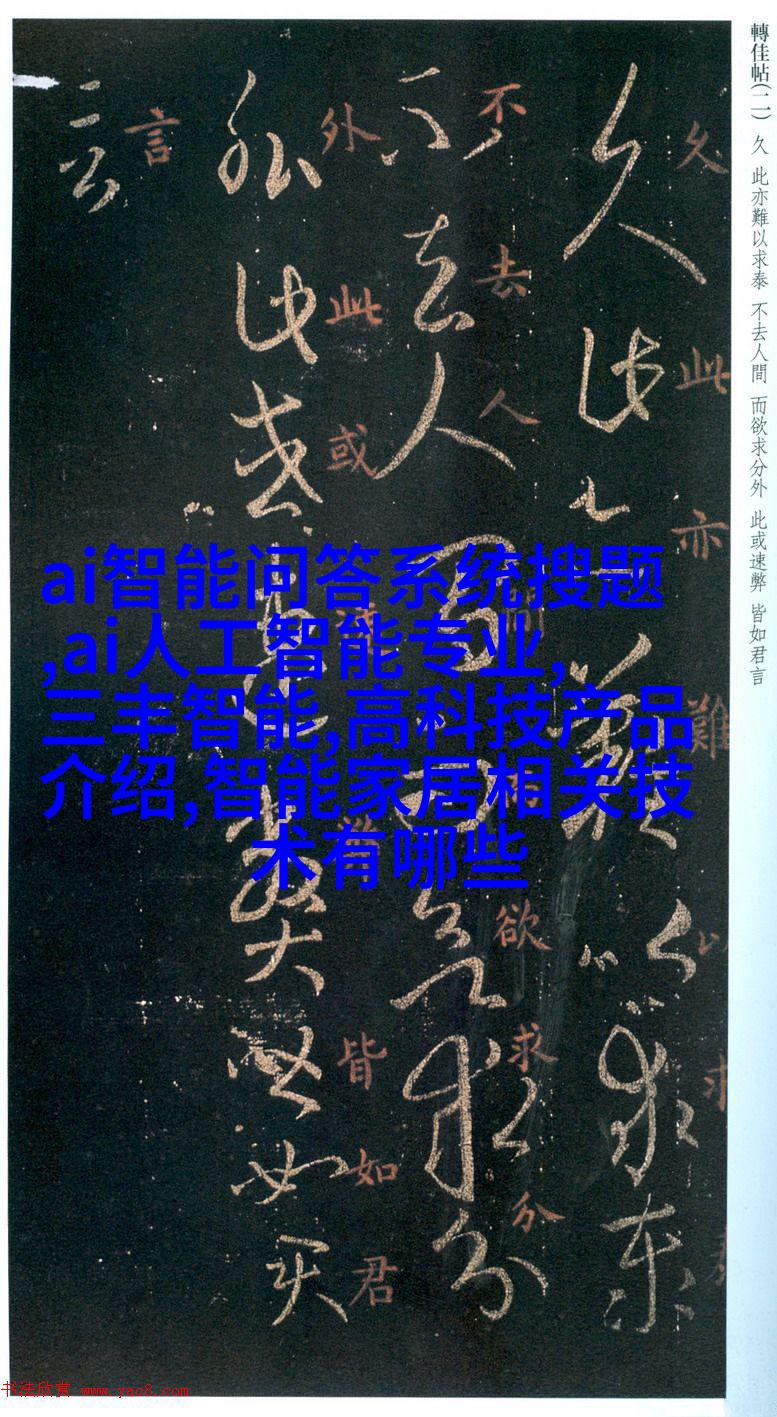 轉佳帖(二) 久 此亦難以求泰 不去人間 而欲求分外 此或速弊 皆如君言
久此亦難以求
不去人間而欲求分
外此或速弊皆如君
言
ai智能问答系统搜题
,ai人工智能专业,
三丰智能,高科技产品
介绍,智能家居相关技
术有哪些
书法欣赏 www.yac8.com